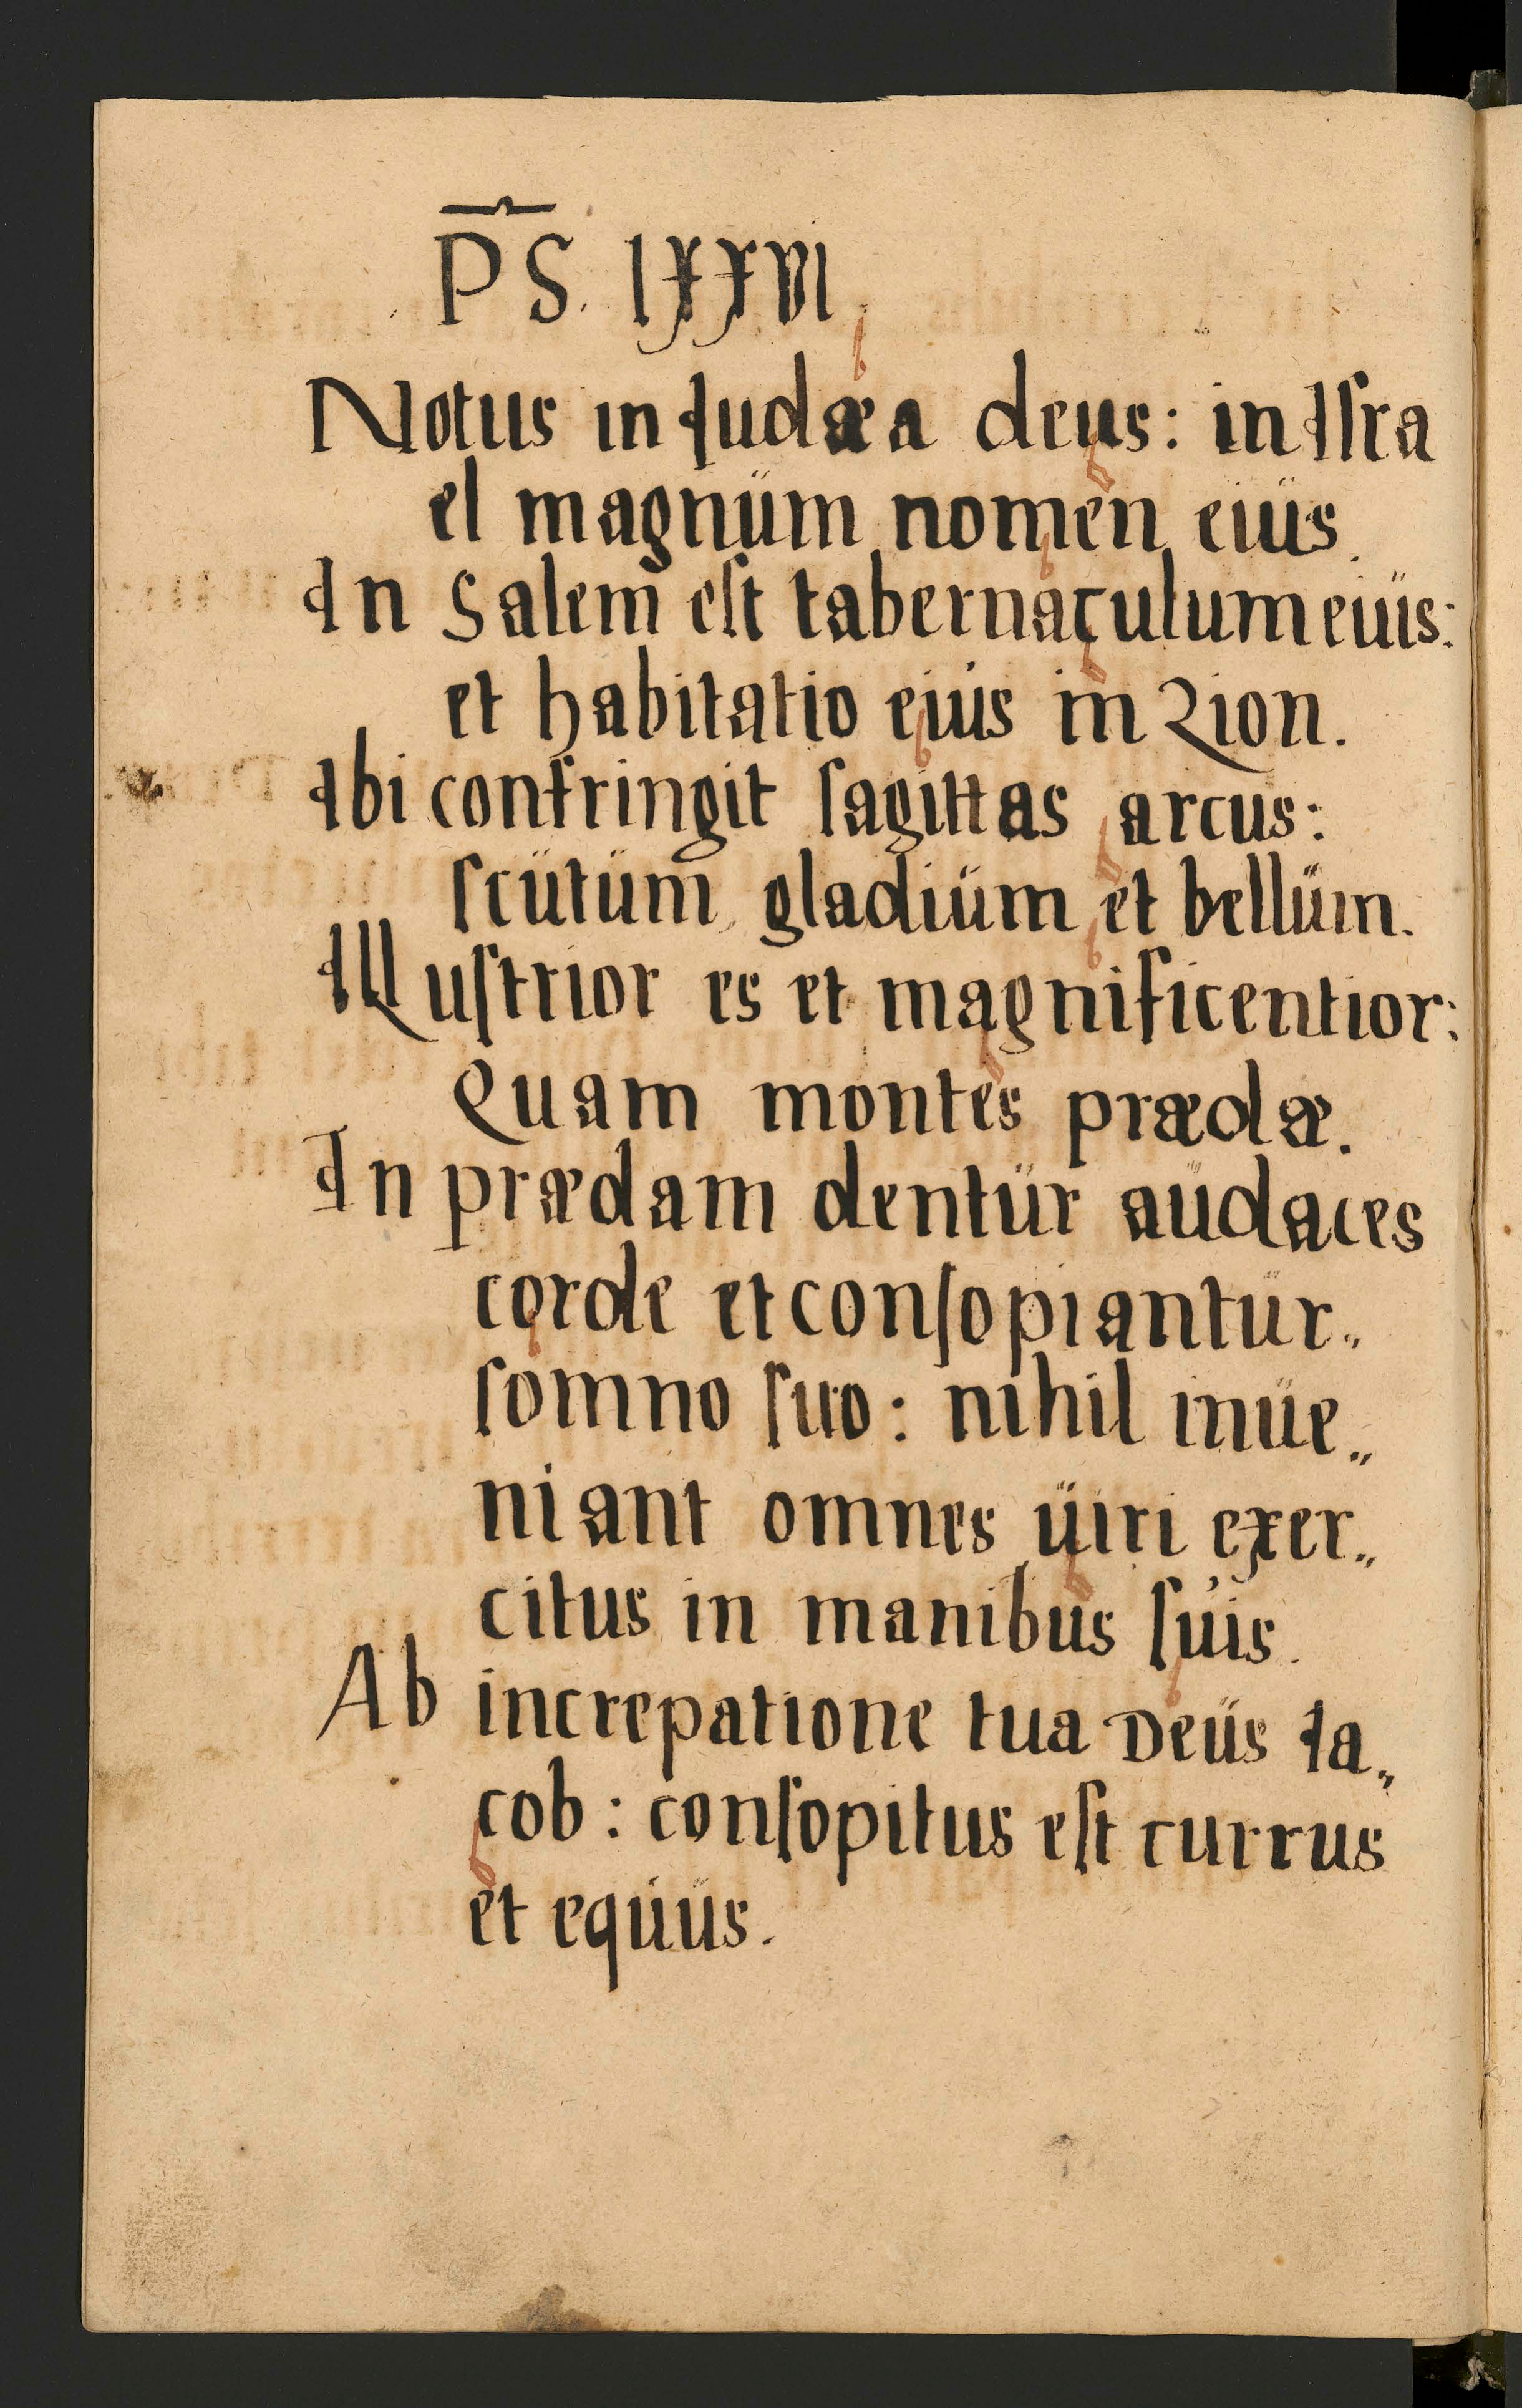 PS. lxxvi.
Notus in Iudæa deus: in Iſra
el magnüm nomen eiüs.
In Salem eſt tabernaculum eiüs:
et habitatio eius in Zion.
Ibi confringit ſagittas arcus:
ſcütüm, gladiüm et bellüm.
Illuſtrior es et magnificentior:
Quam montes prædæ.
In prædam dentür aüdaces
corde et conſopiantür„
ſomno ſuo: nihil inüe„
niant omnes üiri exer„
citus in manibus ſuis.
Ab increpatione tua Deüs Ia„
cob: conſopitus eſt currus
et equüs.